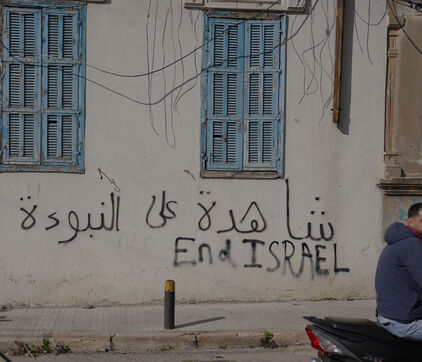 شاهدة على النبوءة
End ISRAEL